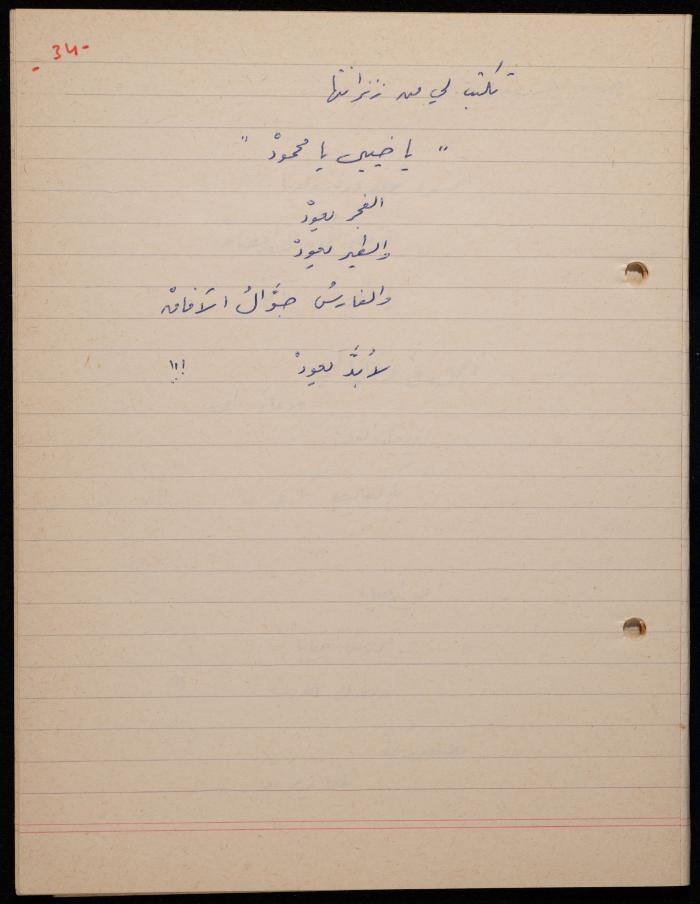 -34-
تكتب لي من زنزانتها
" يا حبيبي يا محمودْ "
الفجر يعودْ
والطير يعودْ
والفارسُ جوَّالُ الآفاقْ
لا بُدَّ يعودْ !!!